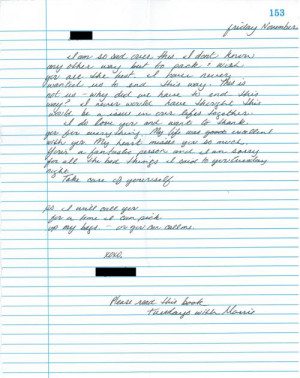 153
friday November
I am so sad over this. I don't know
any other way but to pack. I wish
you all the best. I have never
wanted us to end this way. This is
not us - why did we have to end this
way? I never would have thought this
would be a issue in our lifes together.
I do love you and want to thank
you for everything. My life was good excellent
with you. My heart misses you so much.
Your a fantastic person and I am sorry
for all the bad things I said to you Tuesday
night.
Take care of yourself
ps. I will call you
for a time I can pick
up my bags. - or you can call me.
xoxo.
Please read this book
Tuesdays with Morrie